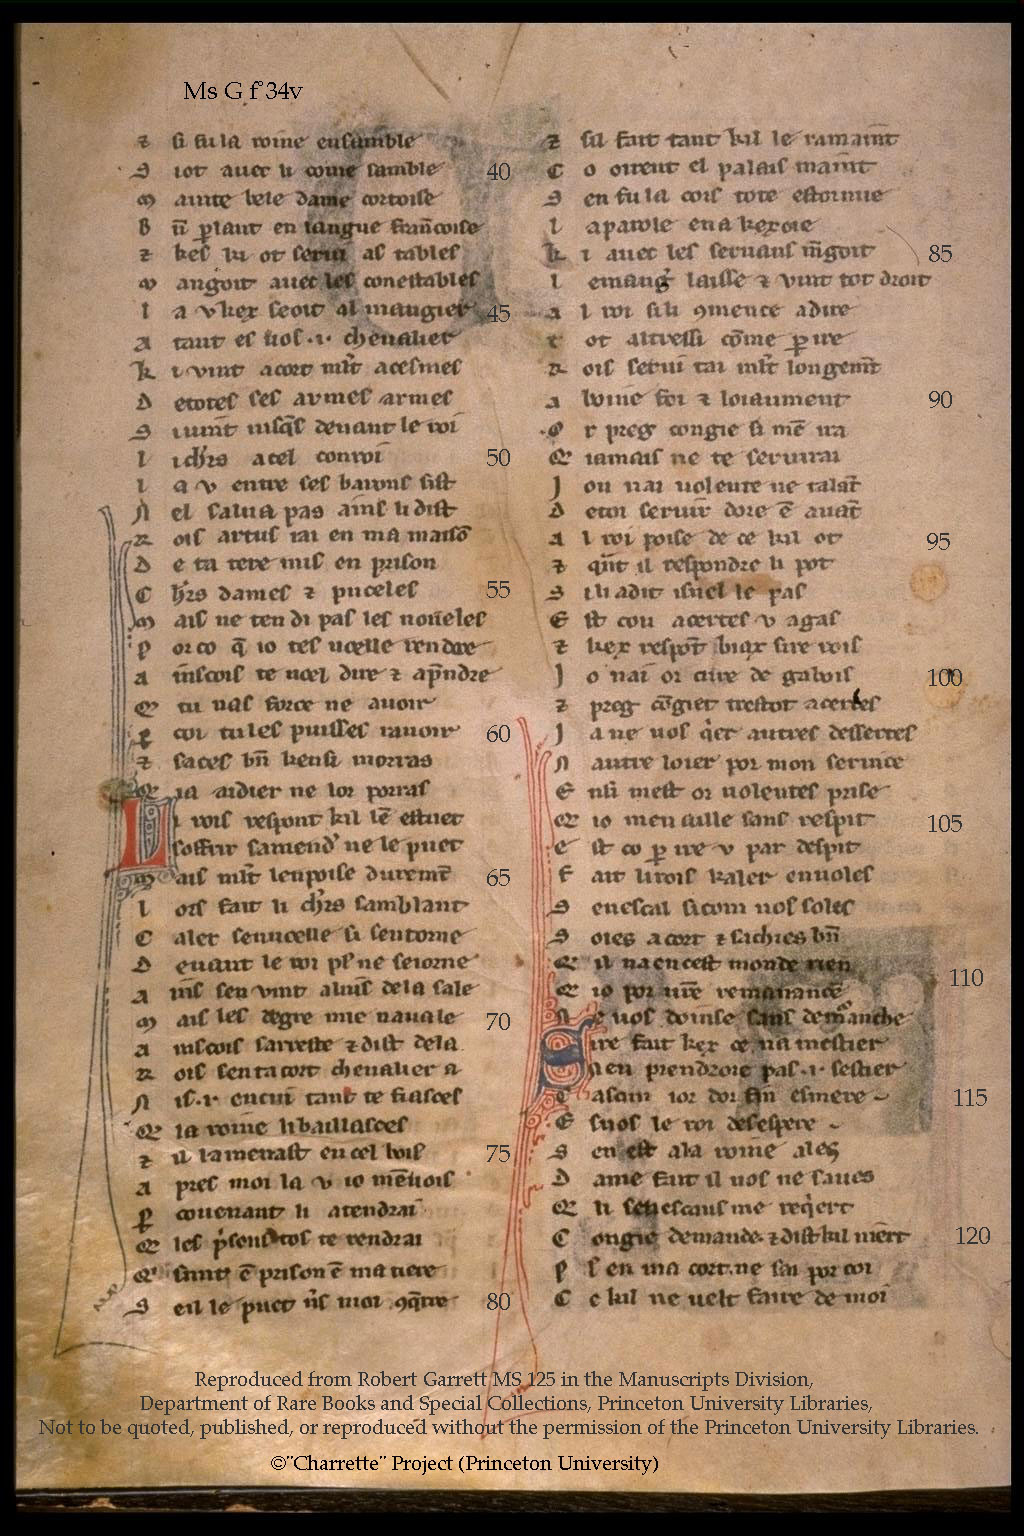 Ms G f° 34v
⁊ si fu la roine ensamble
S iot auec li come samble
M ainte bele dame cortoise
B n̄ ꝑlant en langue franc̄oise
⁊ kes ki ot serui as tables
M angoit auec les conestables
L a v kex seoit al maugier
A tant es uos .i. cheualier
K i vint a cort ml't acesmes
D e totes ses armes armes
S i uint iusq̄s deuant le roi
L i chr̄s a cel conroi
L a v entre ses barons sist
N el salua pas ains li dist
R ois artus iai en ma maisō
D e ta tere mis en prison
C hr̄s dames ⁊ puceles
M ais ne ten di pas les noueles
P or co q̄ io tes uoelle rendre
A īscois te uoel dire ⁊ ap̄ndre
Q tu nas force ne auoir
P coi tu les puisses rauoir
⁊ saces bn̄ kensi morras
Q ia aidier ne lor porras
L i rois respont kil lē estuet
Soffrir samend' ne le puet
M ais ml't len poise duremē
L ors fait li chr̄s samblant
C aler sen uoelle si sen torne
D euant le roi pl' ne seiorne
A īs sen vint al uis de la sale
M ais les degre mie nauale
A inscois sarreste ⁊ dist de la
R ois sen ta cort cheualier a
N is .i. en cui tant te fiasces
Q la roine li baillasces
⁊ il lamenast en cel bois
A pres moi la v io mē uois
P couenant li atendrai
Q les p̄sons tos te rendrai
Q sunt ē prison ē ma tiere
S eil le puet ūs moi ꝯq̄rre
⁊ sil fait tant kil le ramaint
C o oirent el palais maint
S en fu la cors tote estormie
L a parole en a kex oie
K i auec les seruans māgoit
L e mang' laisse ⁊ vint tot droit
A l roi si li ꝯmence a dire
T ot altressi cōme ꝑ ire
R ois serui tai ml't longemt̄
A boine foi ⁊ loiaument
O r preg congie si mē ira
Q iamais ne te seruirai
J ou nai uolente ne talāt
D e toi seruir dore ē auāt
A l roi poise de ce kil ot
⁊ qn̄t il respondre li pot
S i li a dit isnel le pas
E st cou a certes v a gas
⁊ kex respōt biax sire rois
J o nai or cure de gabois
⁊ preg cōgiet trestot a certes
J a ne uos q̄er autres dessertes
N autre loier por mon seruice
E nsi mest or uolentes prise
Q io men aille sans respit
E st co ꝑ ire v par despit
F ait li rois kaler en uoles
S enescal si com uos soles
S oies a cort ⁊ sachies bn̄
Q il na en cest monde rien
Q io por ure remanance
N e uos doinse sans demorance
Sire fait kex ce na mestier
Ia en prendroie pas .i. sestier
C ascun ior dor fin esmere
E s uos le roi desespere
S en est a la roine ales
D ame fait il uos ne saues
Q li senescaus me reqiert
C ongie demande ⁊ dist kil niert
P l' en ma cort ne sai por coi
C e kil ne uelt faire de moi
40
45
50
55
60
65
70
75
80
85
90
95
100
105
110
115
120
Reproduced from Robert Garrett MS 125 in the Manuscripts Division,
Department of Rare Books and Special Collections, Princeton University Libraries,
Not to be quoted, published, or reproduced without the permission of the Princeton University Libraries.
©"Charrette" Project (Princeton University)